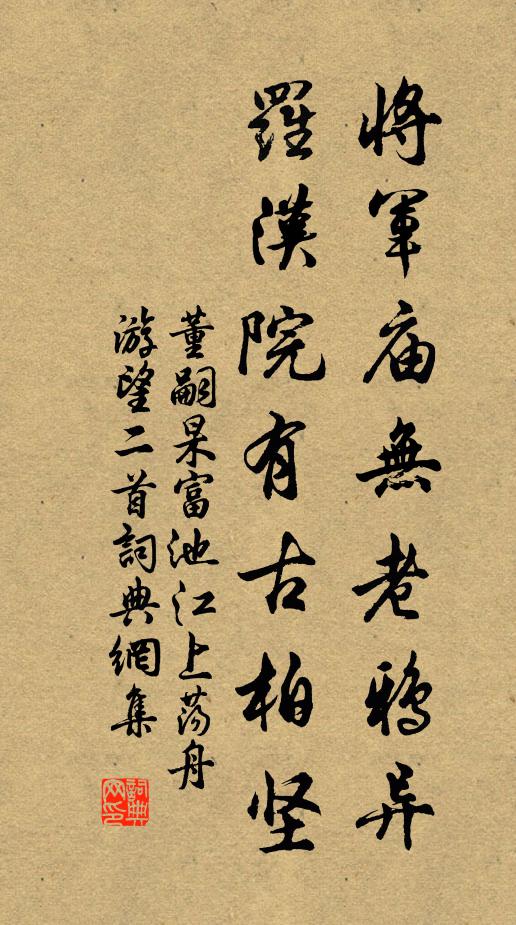 將军庙無老鸦异
羅漢院有古柏坚
董嗣杲富池江上荡舟
游望二首詞典網集
詞典网印